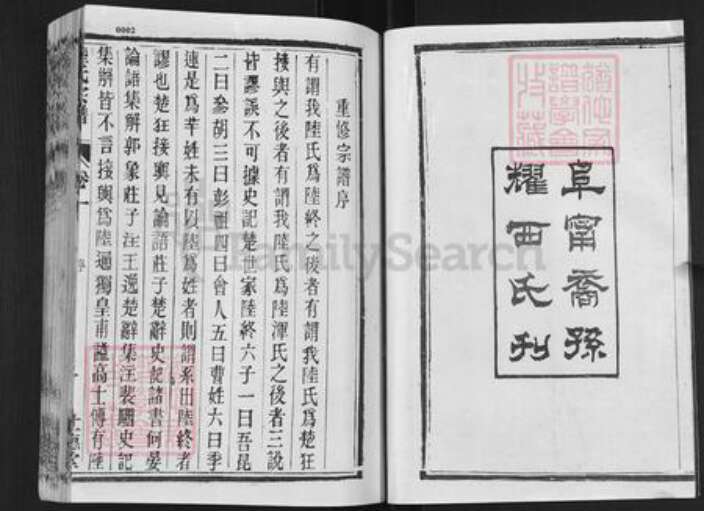 0002
阜甯裔孫
耀西氏刋
重修宗譜序
有謂我陸氏爲陸終之後者有謂我陸氏爲楚狂
接輿之後者有謂我陸氏爲陸渾氏之後者三說
皆謬誤不可據史記楚世家陸終六子一曰昆吾
二曰參胡三曰彭祖四曰會人五曰曹姓六曰季
連是爲芈姓未有以陸爲姓者則謂系出陸終者
謬也楚狂接輿見論語莊子楚辭史記諸書何晏
論語集解郭象莊子注王逸楚辭集注裴駰史記
集解皆不言接輿爲陸通獨皇甫謐高士傳有陸
陸氏宗譜
卷一
序
FamilySearch